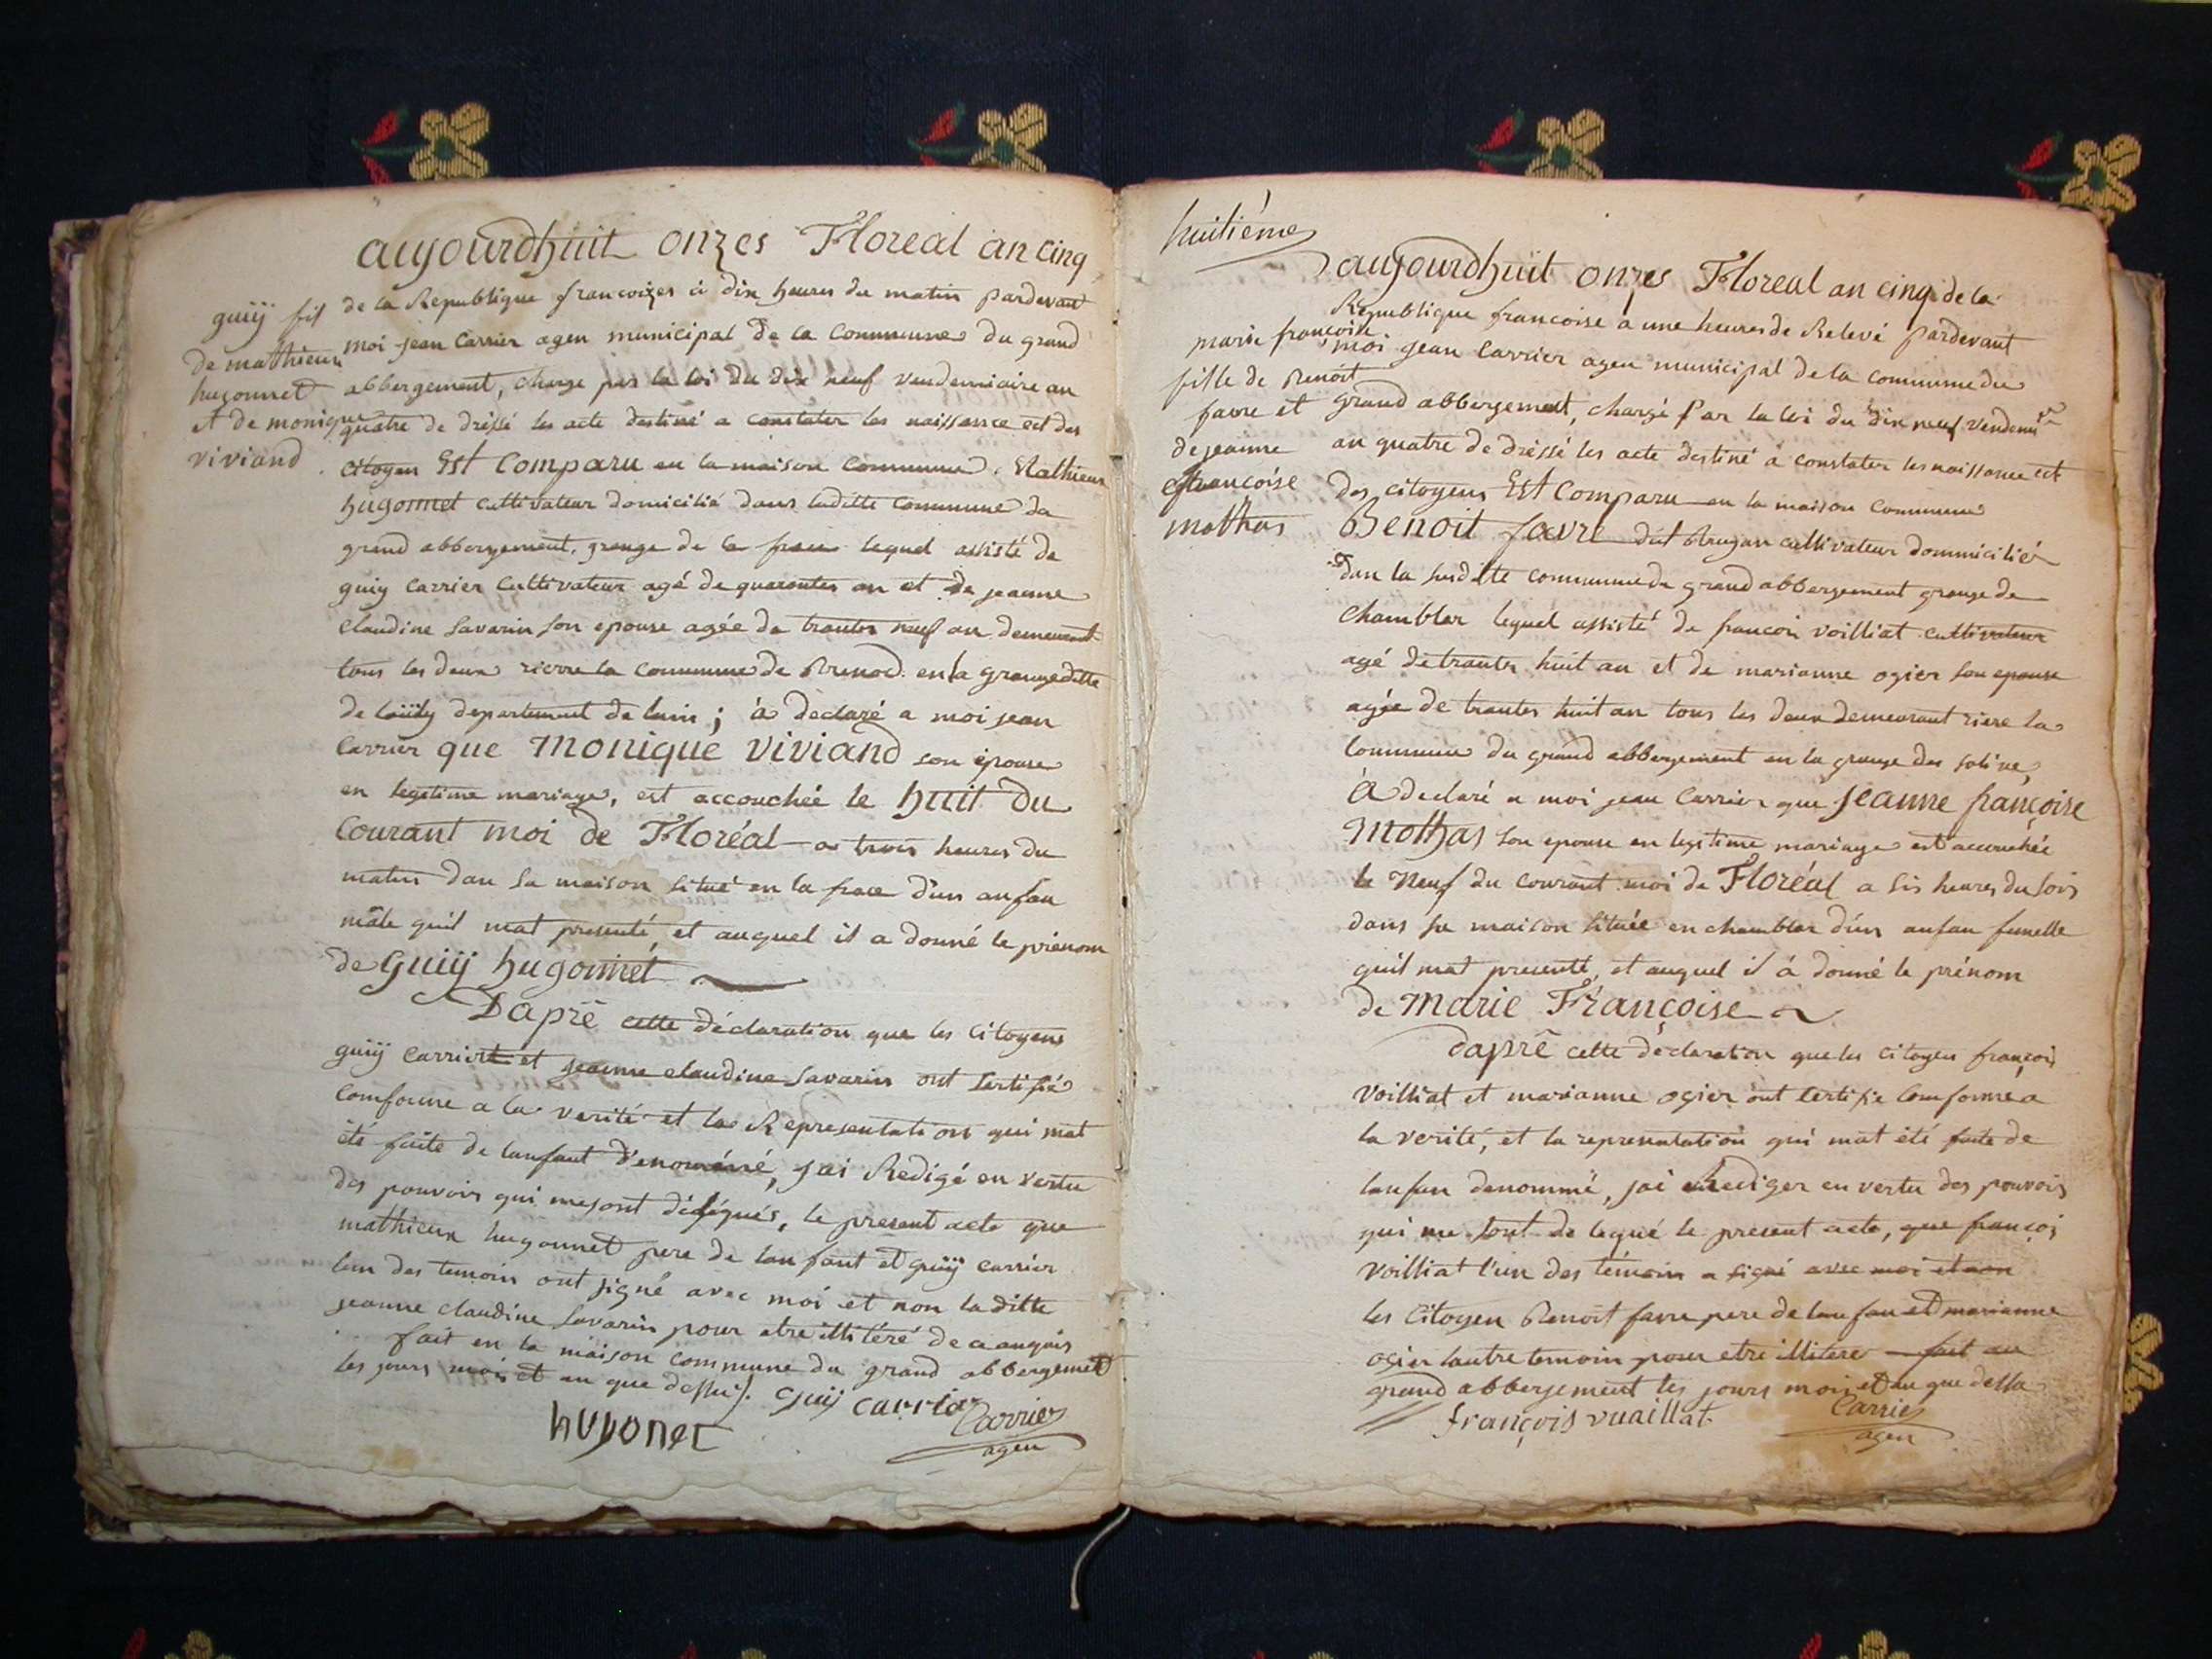 aujourdhuit onzes Floreal an cinq
de la Republique francoises à dix heures du matin pardevant
moi jean Carrier agen municipal de la Commune du grand
abbergement, charge par la loi du dix neuf vendemiaire an
quatre de dréssé les acte destiné a constater les naissance ect des
citoyen Est Comparu en la maison Commune. Mathieux
hugonnet cultivateur domicilié dans laditte Commune du
grand abbergement, grange de la lequel assisté de
guiy Carrier Cultivateur agé de quarantes an et de jeanne
Claudine Savarin son epouse agée de trantes neuf an demeurant
tous les deux rierre la Commune de Brenod en la grange ditte
de departement de lain ; à declaré a moi jean
Carrier que Monique Viviand son épouse
en legitime mariage, est accouchée le huit du
Courant moi de Floréal a trois heures du
matin dan sa maison situé en la d'un anfan
mâle quil mat presenté, et auquel il a donné le prénom
de Guiÿ hugonnet
guiÿ fil
de mathieux
hugonnet
et de monique
viviand
Daprê cette déclaration que les Citoyens
guiÿ Carrier et jeanne claudine Savarin ont Sertifié
Comforme a la verité et la Representation qui mat
été faite de lanfant dénommé, jai Redigé en vertu
des pouvoirs qui me sont délégués, le present acte que
mathieux hugonnet pere de lanfant et guiÿ carrier
lun des temoin ont signé avec moi et non laditte
jeanne claudine Savarin pour etre illitéré de ce anquis
fait en la maison Commune du grand abbergemet
les jours mois et an que dessus. Guiy carrier
hugonet
Carrier
agen
huitième
aujourdhuit onzes Floreal an cinq de la
Republique francoise a une heures de Relevé pardevant
moi jean Carrier agen municipal de la Commune du
grand abbergement, chargé par la loi du dix neuf vendemre
an quatre de dréssé les acte destiné a constater les naissance ect
des citoyens Est Comparu en la maison Commune
Benoit favre dit cultivateur dommicilié
dan la susditte commune du grand abbergement grange de
Chambler lequel assisté de francoi voilliat cultivateur
agé de trantes huit an et de marianne ogier son epouse
agée de trantes huit an tous les deux demeurant riere la
Commune du grand abbergement en la grange des solives,
à declaré a moi jean Carrier que jeanne françoise
Mothas son epouse en legitime mariage est accouchée
le Neuf du Courant moi de Floréal a sis heures du soir
dans sa maison située en chambler d'un anfan fumelle
quil mat presenté, et auquel il à donné le prénom
de Marie Françoise
marie françoise
fille de Benoit
favre et
de jeanne
francoise
mothas
daprê cette declaration que les citoyen françois
voilliat et marianne ogier ont certifie Comforme a
la verité, et la representation qui mat été faite de
lanfan denommé, jai rediger en vertu des pouvoirs
qui me sont de legué le present acte, que françois
voilliat l'un des témoin a signé avec moi et non
les Citoyen Benoit favre pere de lanfan et marianne
ogier lautre temoin pour etre illitere fait au
grand abbergement les jours moi et an que dessu
françois vuaillat
Carrier
agen